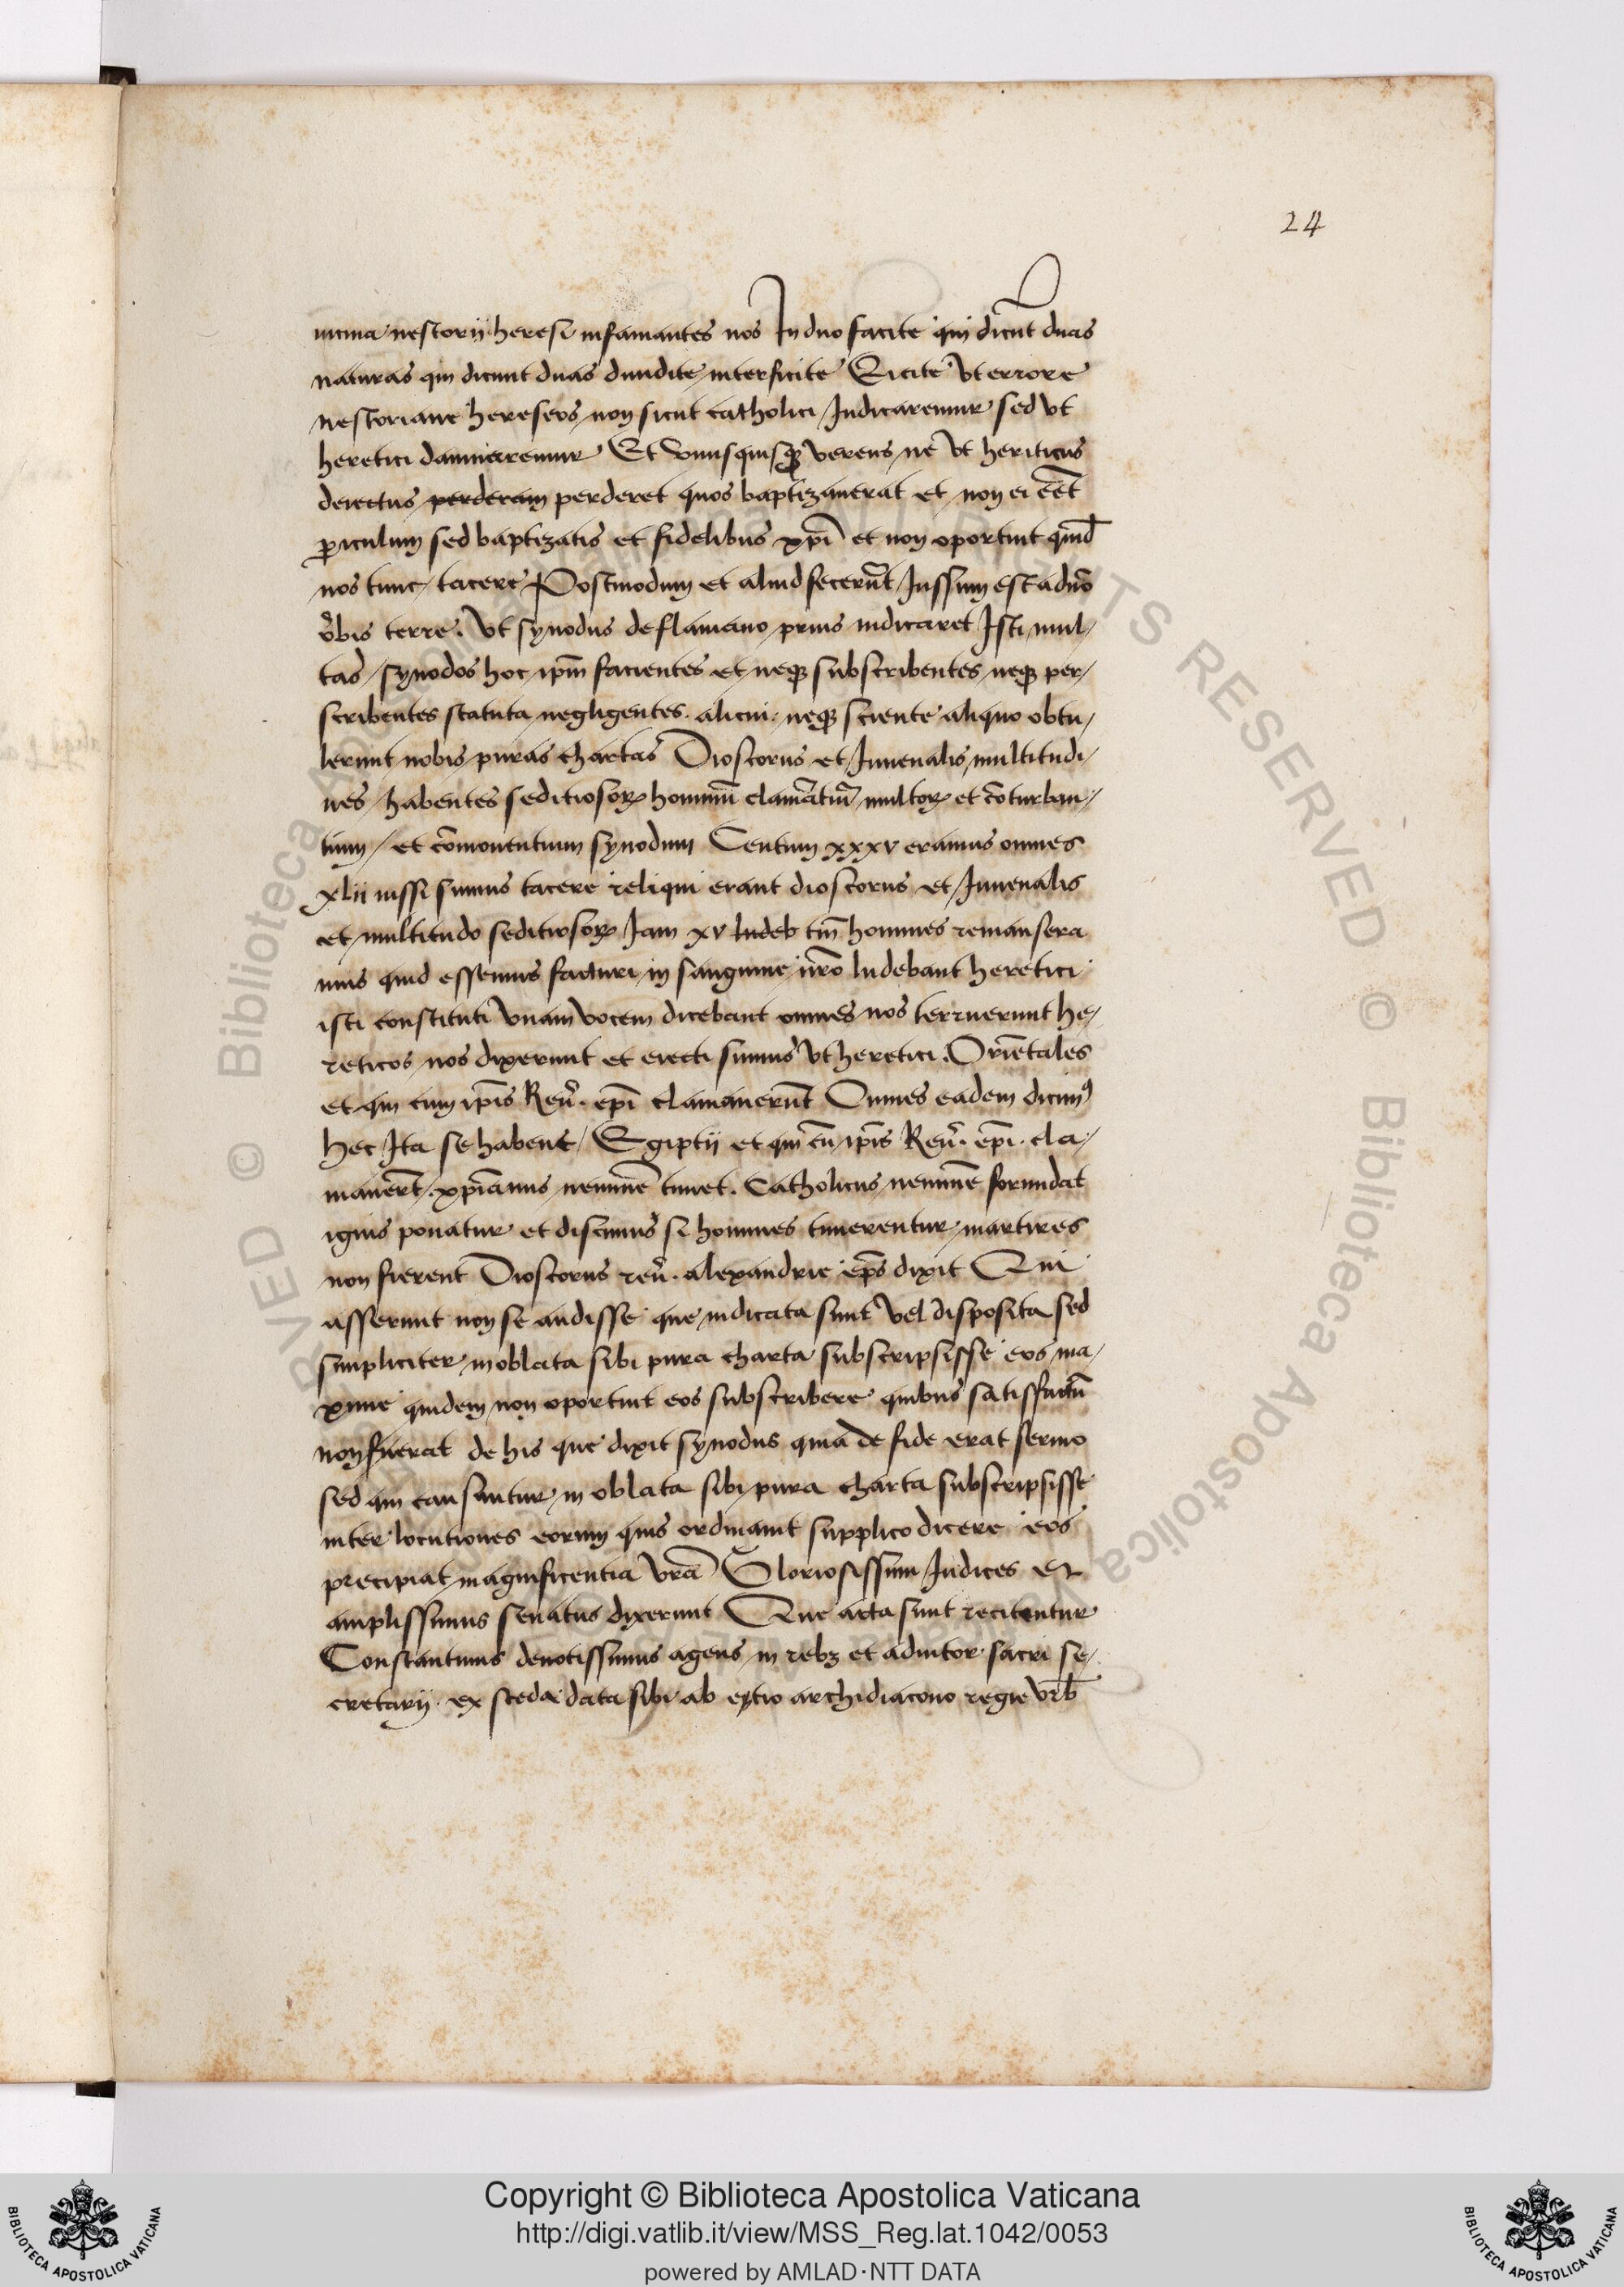 24
nicina nestorij heresi infamantes nos In duo facite qui dicūt duas
naturas qui dicunt duas diuidite interficite Eicite Vt errore
nestoriane hereseos non sicut catholici Iudicaremur sed vt
heretici damnaremur Et Vnusquisq verens ne Vt heriticus
deiectus perderam perderet quos baptizauerat et non ei eēt
periculum sed baptizatis et fidelibus xpi et non oportuit quid
nos tunc tacere Postmodum et aliud fecerūt Iussum est a dno
orbis terre. Vt synodus de flauiano prius iudicaret Isti mul/
tas synodos hoc ipm facientes et neq subscribentes neq per/
scribentes statuta negligentes. alicui. neq sciente aliquo obtu/
lerunt nobis puras chartas Dioscorus et Iuuenalis multitudi/
nes habentes seditiosor hominū clamātiū multor et cōturban/
tium et cōmouentium synodum Centum xxxv eramus omnes
xlii iussi sumus tacere reliqui erant dioscorus et Iuuenalis
et multitudo seditiosor Iam xv ludeb tm homines remansera
mus quid essemus facturi in sanguine nro ludebant heretici
isti constituti Vnam vocem dicebant omnes nos terruerunt he/
reticos nos dixerunt et eiecti sumus Vt heretici. Oriētales
et qui cum ipis Reu. epi clamauerūt Omnes eadem dicim9
hec Ita se habent Egiptij et qui cū ipis Reu. epi. cla/
mauert. xpianus neminē timet. Catholicus neminē formidat
ignis ponatur et discimus si homines timerentur martires
non fierent Dioscorus reu. alexandrie eps dixit Qui
asserunt non se audisse que iudicata sunt Vel disposita sed
simpliciter in oblata sibi pura charta subscripsisse eos ma/
xime quidem non oportuit eos subscribere quibus satisfactū
non fuerat de his que dixit synodus quia de fide erat sermo
sed qui causantur in oblata sibi pura charta subscripsisse
inter locutiones eorum quis ordinauit supplico dicere eos
precipiat magnificentia Vrā Gloriosissimi Iudices Et
amplissimus senatus dixerunt Que acta sunt recitentur
Constantinus deuotissimus agens in rebz et adiutor sacri se/
cretarij. ex sceda data sibi ab eytio archidiacono regie vrb
© Biblioteca Apostolica Vaticana
ALL RIGHTS RESERVED
Copyright © Biblioteca Apostolica Vaticana
http://digi.vatlib.it/view/MSS_Reg.lat.1042/0053
powered by AMLAD·NTT DATA
BIBLIOTECA APOSTOLICA VATICANA
BIBLIOTECA APOSTOLICA VATICANA